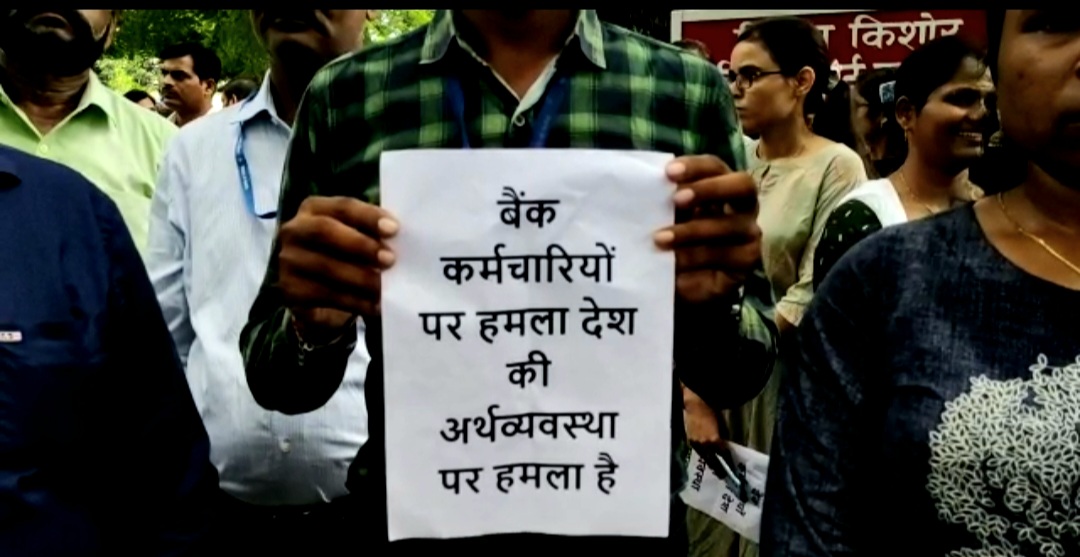 किशोर
बैंक
कर्मचारियों
पर हमला देश
की
अर्थव्यवस्था
पर हमला है